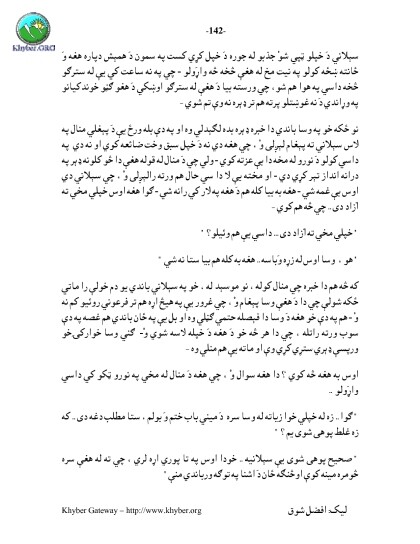 -142-
Khyber.ORG
سپلانې دَ خپلو ټپي شوُ جذبو له جوره دَ خپل کړي کست په سمون دَ هميش دپاره هغه وَ
ځانته ښځه کولو په نيت مخ له هغې څخه څه واړولو - چې په نه ساعت کې يې له سترګو
څخه داسې په هوا هم شو ، چې ورسته بيا دَ هغې له سترګو اوښکې دَ هغو ګڼو خوندکيانو
په وړاندې دَ نه غوښتلو پرته هم تر ډېره نه وې تم شوې -
نو ځکه خو په وسا باندې دا خبره ډېره بده لګېدلې وه او په دې بله ورځ يې دَ پيغلې منال په
لاس سپلانې ته پېغام لېږلی وُ ، چې هغه دې نه دَ خپل سبق وخت ضائعه کوي او نه دې په
داسې کولو دَ نورو له مخه دا بې عزته کوي - ولې چې دَ منال له قوله هغې دا څو کلونه ډېر په
درانه انداز تېر کړي دي - او مخته يې لا دا سې حال هم ورته رالېږلی وُ ، چې سپلانې دې
اوس بې غمه شي - هغه به بيا کله هم دَ هغه په لار کې رانه شي - ګوا هغه اوس خپلې مخې ته
آزاد دی .. چې څه هم کوي -
" خپلې مخې ته آزاد دی ... داسې يې هم وئيلو ؟ "
" هو ، وسا اوس له زړه وَباسه.. هغه به کله هم بيا ستا نه شي "
که څه هم دا خبره چې منال کوله ، نو موسېد له ، خو په سپلانې باندې يو دم خولې را ماتې
ځکه شولې چې دا دَ هغې وسا پېغام وُ ، چې غرور يې په هيڅ اړه هم تر فرعونې روئيو کم نه
وُ - هم په دې خو هغه دَ وسا دا فيصله حتمي ګڼلې وه او بل يې په ځان باندې هم غصه په دې
سوب ورته راتله ، چې دا هر څه خو دَ هغه دَ خپله لاسه شوي وُ - ګنې وسا خوارکۍ خو
ورپسې ډېرې سترې کړې وې او ماته يې هم منلې وه -
اوس به هغه څه کوي ؟ دا هغه سوال وُ ، چې هغه دَ منال له مخې په نورو ټکو کې داسې
واړولو ..
" ګوا .. زه له خپلې خوا زياته له وسا سره دَ مينې باب ختم وَبولم ، ستا مطلب دغه دی .. که
زه غلط پوهی شوی يم ؟ "
" صحيح پوهی شوی يې سپلانيه .. خو دا اوس په تا پورې اړه لري ، چې ته له هغې سره
څومره مينه کوې او څنګه ځان دَ اشنا په توګه ورباندې منې "
Khyber Gateway – http://www.khyber.org
ليک: افضل شوق